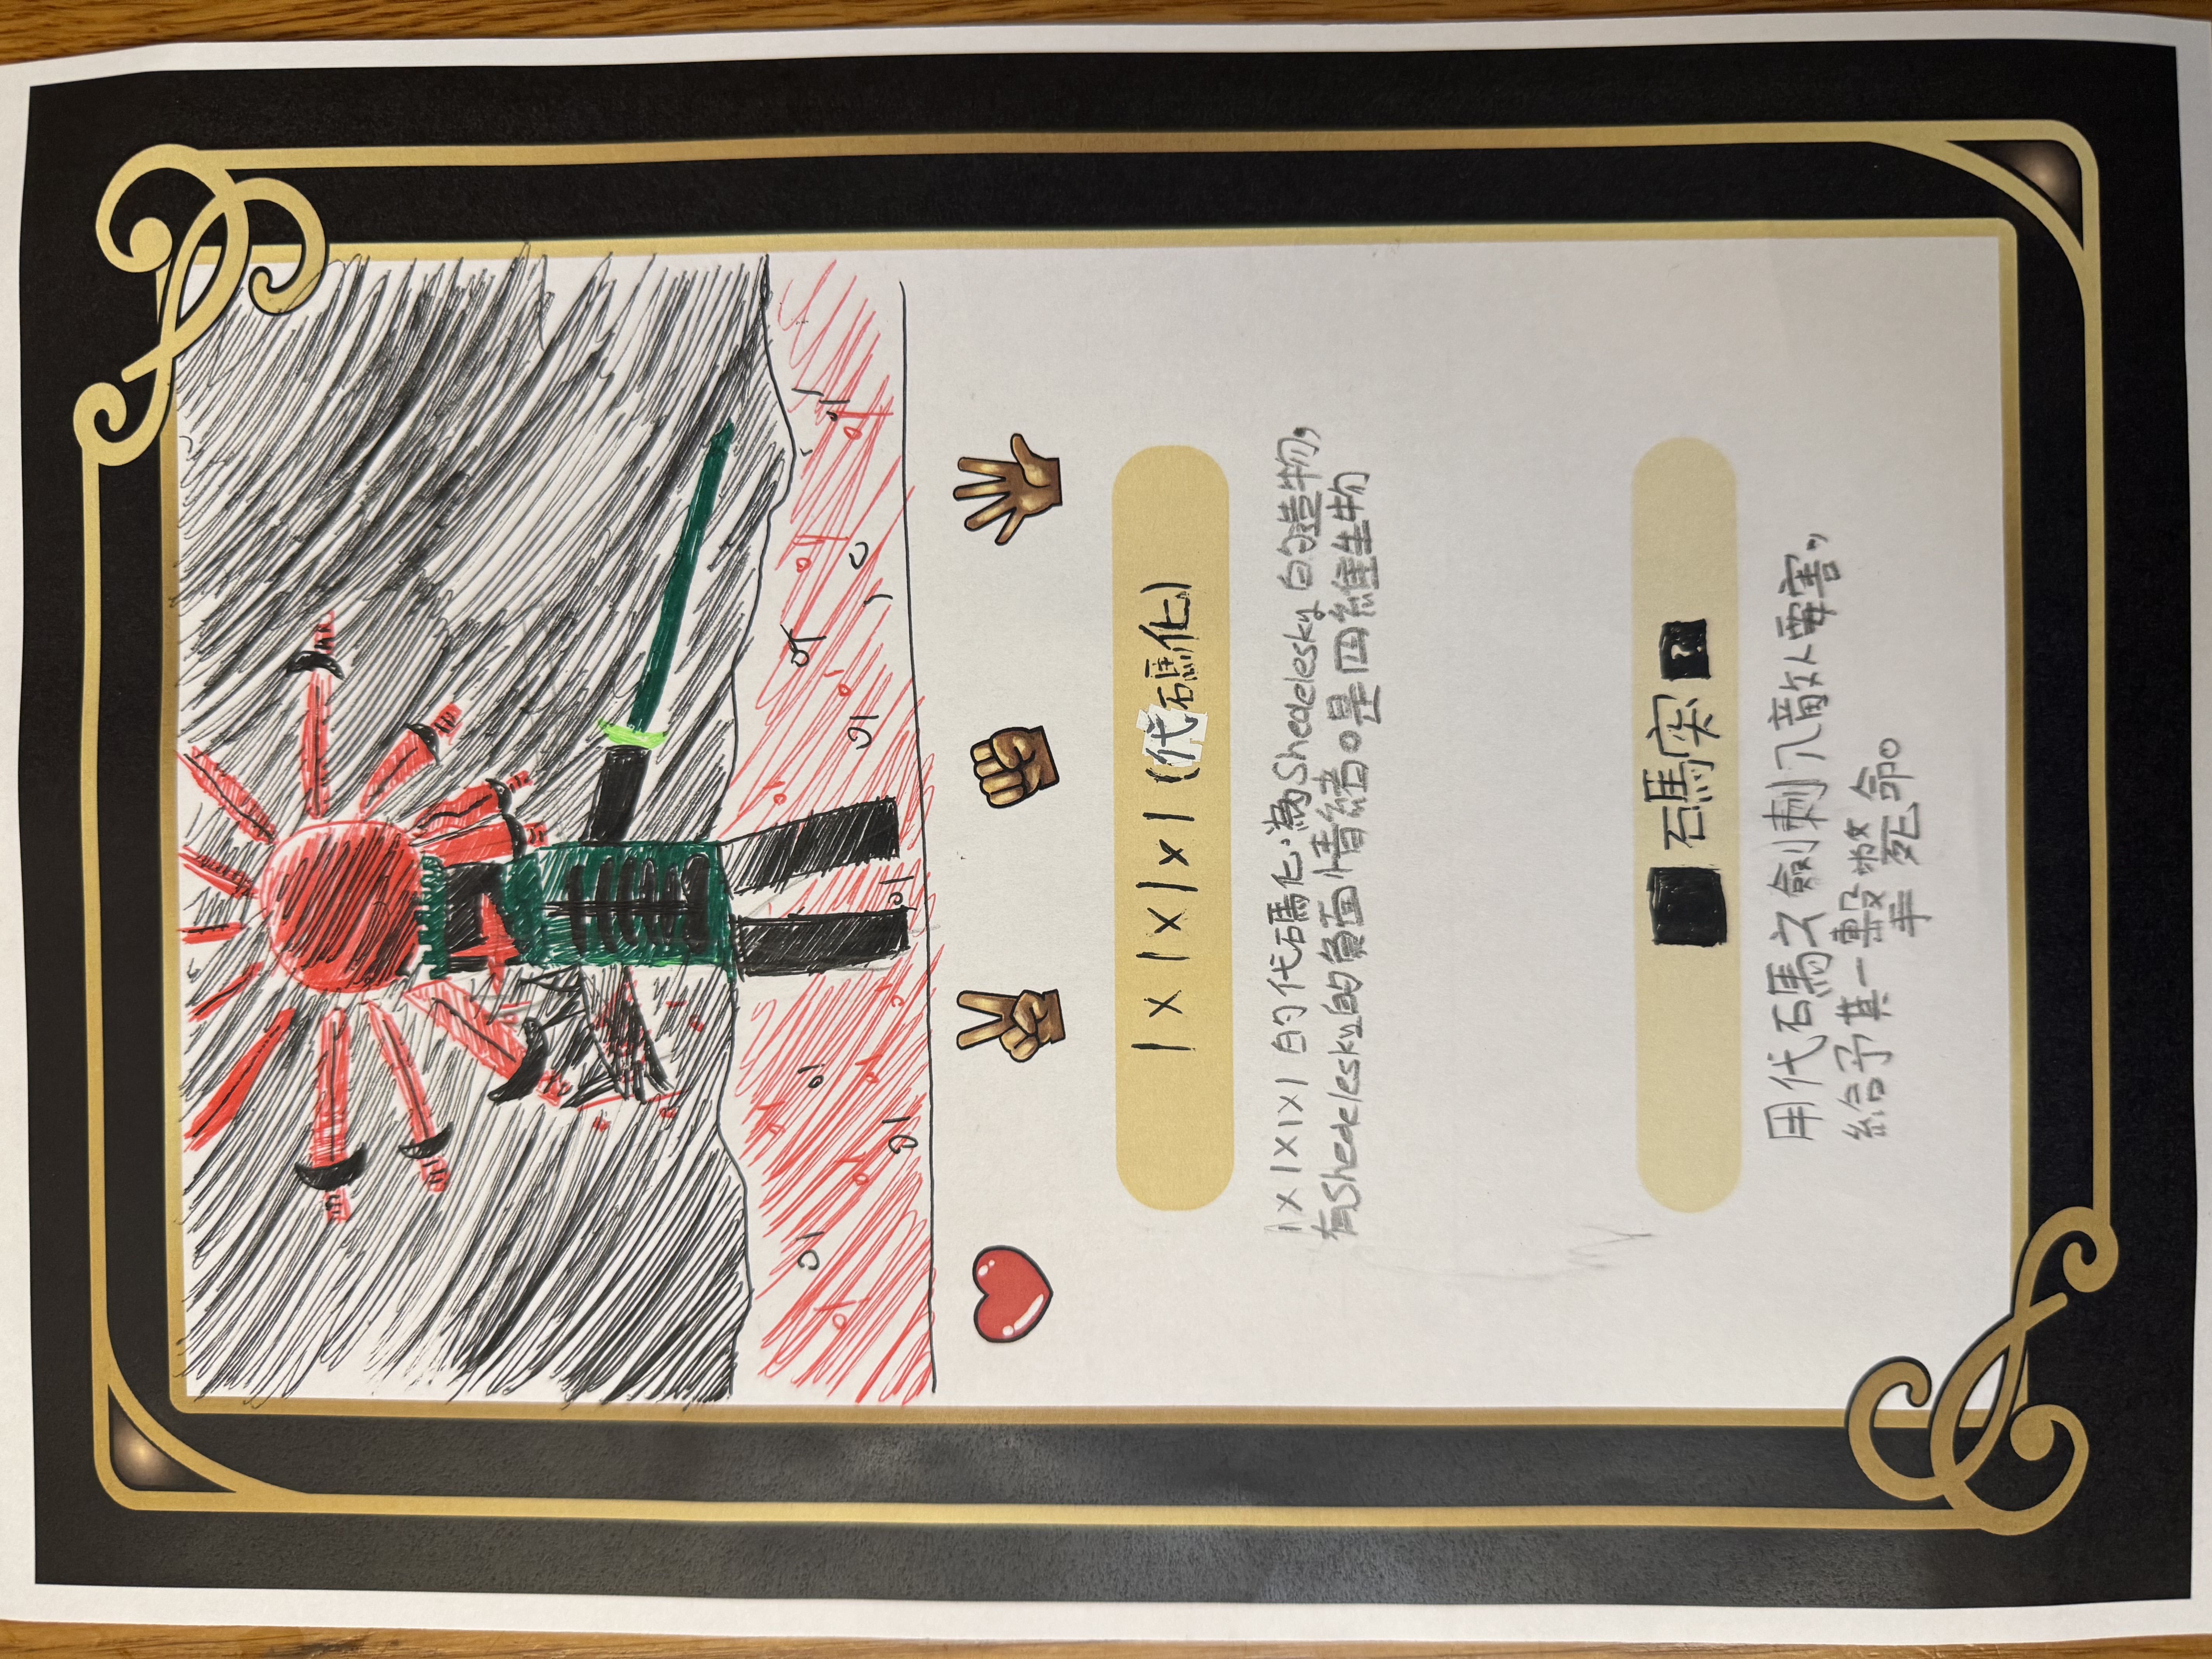 1x1x1x1(代碼化)
1x1x1x1的代碼化,為Shedelesky的造物,
有Shedelesky的負面情緒。是四維生物
碼突
用代碼之劍刺入敵人要害,
給予其一擊斃命。